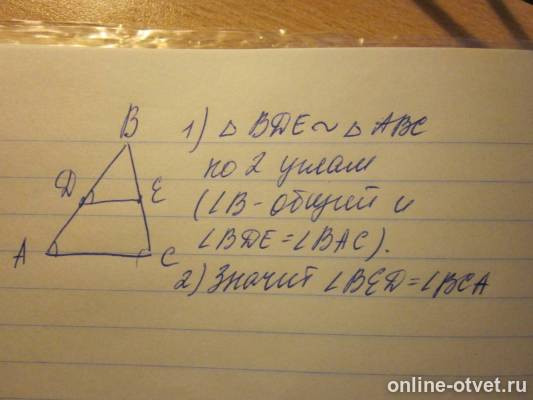 B
Д
E
A
C
1) △ BDE ~ △ ABC
по 2 углам
(∠B - общий и
∠BDE = ∠BAC).
2) Значит ∠BED = ∠BCA
online-otvet.ru